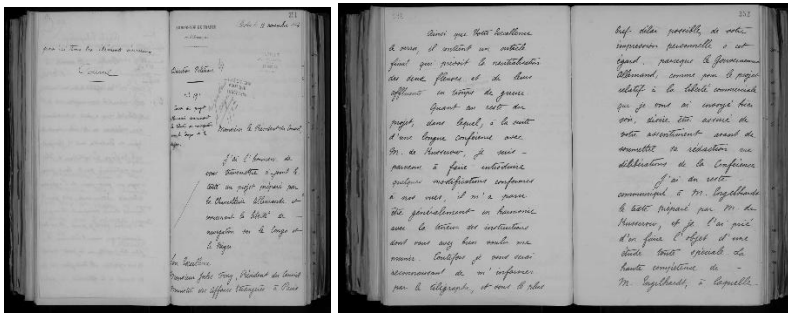 251
Berlin le 18 novembre
Direction Politique
Envoi du projet
Monsieur le Président du Conseil,
J'ai l'honneur de
vous transmettre ci-joint le
texte du projet préparé par
la Chancellerie Allemande et
concernant la liberté de
navigation sur le Congo et
le Niger.
Son Excellence
Monsieur Jules Ferry, Président du Conseil
Ministre des Affaires Etrangères à Paris
Ainsi que Votre Excellence
le verra, il contient un article
final qui prévoit la neutralisation
des deux fleuves et de leurs
affluents en temps de guerre
Quant au reste du
projet, dans lequel, à la suite
d'une longue conférence avec
M. de Kusserow, je suis
parvenu à faire introduire
quelques modifications conformes
à nos vues, il m'a paru
être généralement en harmonie
avec la teneur des instructions
dont vous avez bien voulu me
munir. Toutefois je vous serai
reconnaissant de m'informer
par le télégraphe, et sous le plus
252
bref délai possible, de votre
impression personnelle à cet
égard, parceque le Gouvernement
Allemand, comme pour le projet
relatif à la liberté commerciale
que je vous ai envoyé hier
soir, désire être assuré de
votre assentiment avant de
soumettre sa rédaction aux
délibérations de la Conférence
J'ai du reste
communiqué à M. Engelhardt
le texte préparé par M. de
Kusserow, et je l'ai prié
d'en faire l'objet d'une
étude toute spéciale. La
haute compétence de
M. Engelhardt, à laquelle